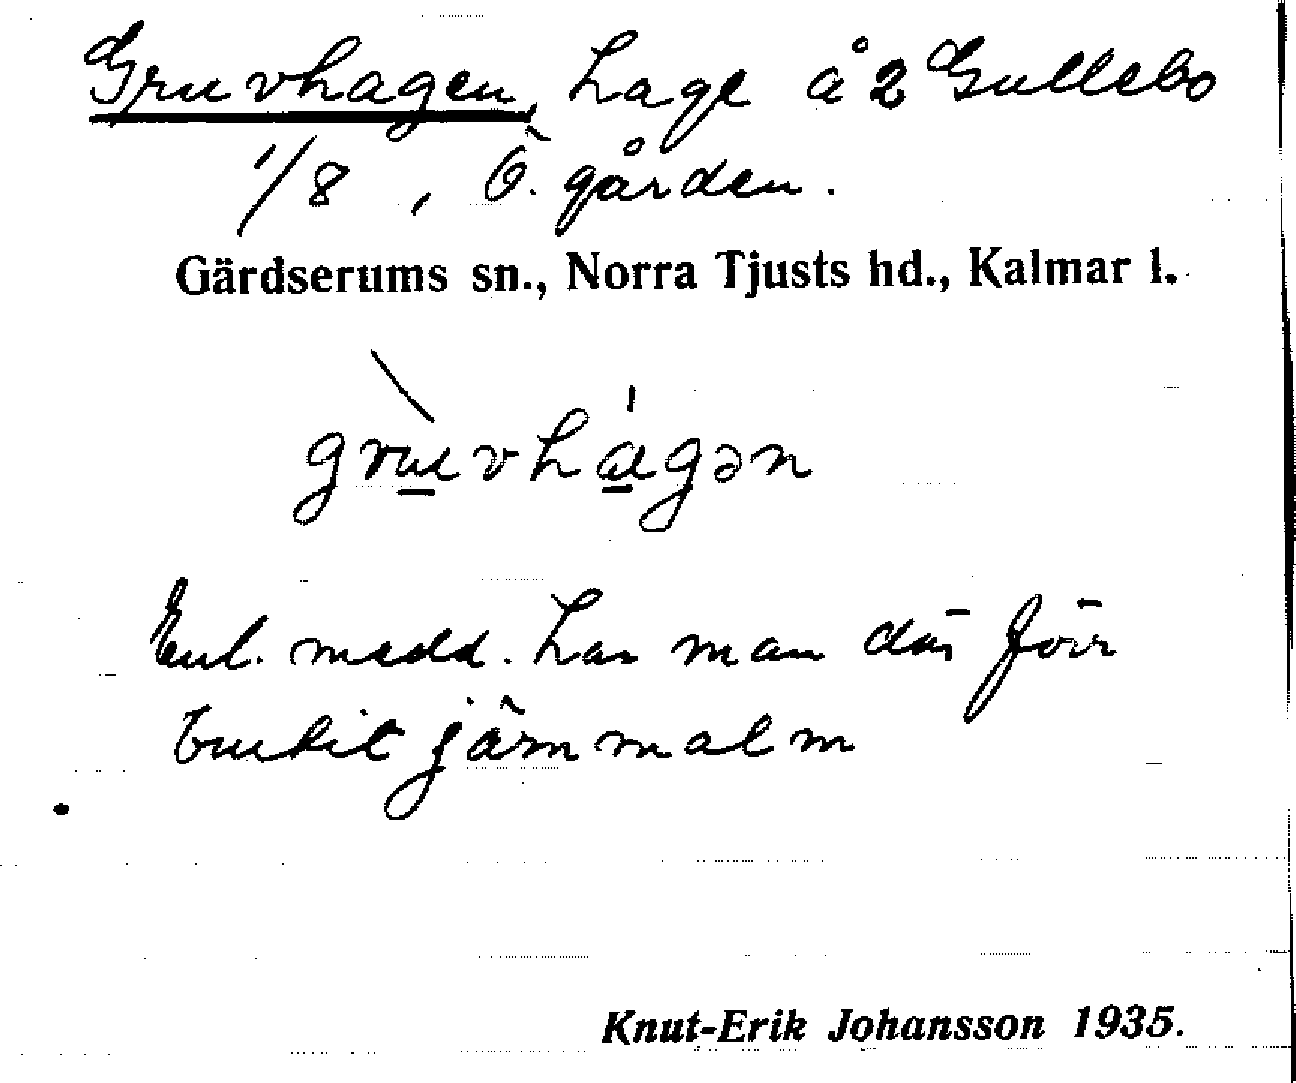 Gruvhagen, hage å 2 Gullebo
1/8, Ö. gården.
Gärdserums sn., Norra Tjusts hd., Kalmar l.
grùvhágən
Enl. medd. har man där förr
brutit järnmalm
Knut-Erik Johansson 1935.